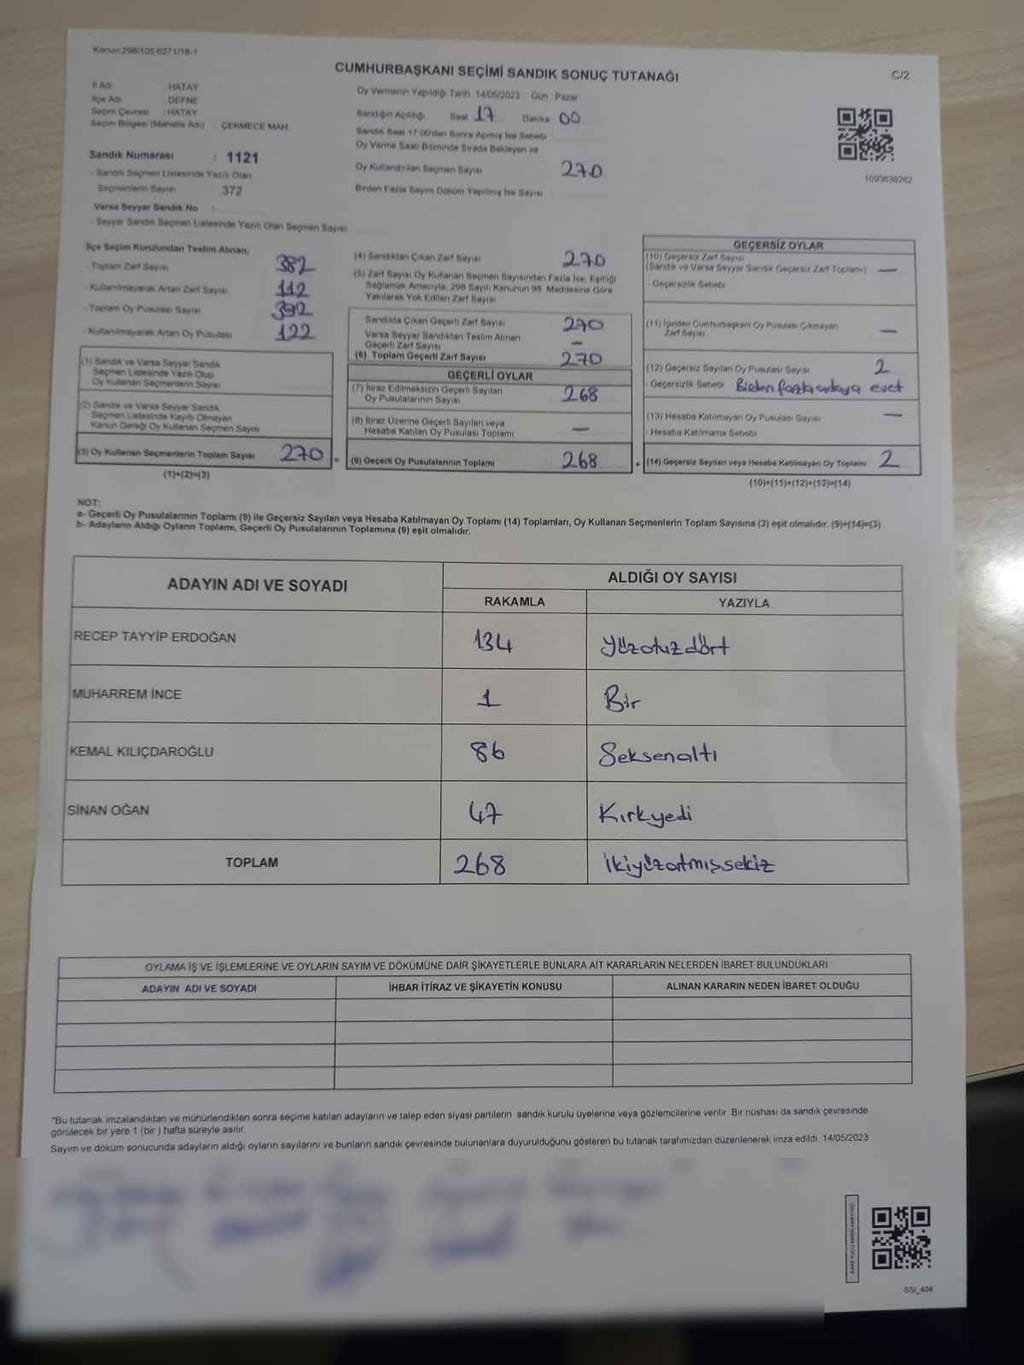 Kanun:298/105-6271/18-1
CUMHURBAŞKANI SEÇİMİ SANDIK SONUÇ TUTANAĞI
C/2
İl Adı : HATAY
İlçe Adı : DEFNE
Seçim Çevresi : HATAY
Seçim Bölgesi (Mahalle Adı) : ÇEKMECE MAH.
Sandık Numarası : 1121
- Sandık Seçmen Listesinde Yazılı Olan
Seçmenlerin Sayısı : 372
Varsa Seyyar Sandık No :
- Seyyar Sandık Seçmen Listesinde Yazılı Olan Seçmen Sayısı :
Oy Vermenin Yapıldığı Tarih : 14/05/2023 Gün : Pazar
Sandığın Açıldığı Saat 17 Dakika 00
Sandık Saat 17:00'den Sonra Açılmış İse Sebebi :
Oy Verme Saati Bitiminde Sırada Bekleyen ve
Oy Kullandırılan Seçmen Sayısı 270
Birden Fazla Sayım Döküm Yapılmış İse Sayısı
1093638262
İlçe Seçim Kurulundan Teslim Alınan;
- Toplam Zarf Sayısı 382
- Kullanılmayarak Artan Zarf Sayısı 112
- Toplam Oy Pusulası Sayısı 392
- Kullanılmayarak Artan Oy Pusulası 122
(1) Sandık ve Varsa Seyyar Sandık
Seçmen Listesinde Yazılı Olup
Oy Kullanan Seçmenlerin Sayısı
(2) Sandık ve Varsa Seyyar Sandık
Seçmen Listesinde Kayıtlı Olmayan
Kanun Gereği Oy Kullanan Seçmen Sayısı
(3) Oy Kullanan Seçmenlerin Toplam Sayısı 270 =
(1)+(2)=(3)
(4) Sandıktan Çıkan Zarf Sayısı 270
(5) Zarf Sayısı Oy Kullanan Seçmen Sayısından Fazla İse, Eşitliği
Sağlamak Amacıyla, 298 Sayılı Kanunun 98. Maddesine Göre
Yakılarak Yok Edilen Zarf Sayısı
Sandıkta Çıkan Geçerli Zarf Sayısı 270
Varsa Seyyar Sandıktan Teslim Alınan
Geçerli Zarf Sayısı —
(6) Toplam Geçerli Zarf Sayısı 270
GEÇERLİ OYLAR
(7) İtiraz Edilmeksizin Geçerli Sayılan
Oy Pusulalarının Sayısı 268
(8) İtiraz Üzerine Geçerli Sayılan veya
Hesaba Katılan Oy Pusulası Toplamı —
(9) Geçerli Oy Pusulalarının Toplamı 268 +
GEÇERSİZ OYLAR
(10) Geçersiz Zarf Sayısı
(Sandık ve Varsa Seyyar Sandık Geçersiz Zarf Toplamı) —
- Geçersizlik Sebebi :
(11) İçinden Cumhurbaşkanı Oy Pusulası Çıkmayan
Zarf Sayısı —
(12) Geçersiz Sayılan Oy Pusulası Sayısı 2
- Geçersizlik Sebebi : Birden fazla adaya evet
(13) Hesaba Katılmayan Oy Pusulası Sayısı —
- Hesaba Katılmama Sebebi :
(14) Geçersiz Sayılan veya Hesaba Katılmayan Oy Toplamı 2
(10)+(11)+(12)+(13)=(14)
NOT:
a- Geçerli Oy Pusulalarının Toplamı (9) ile Geçersiz Sayılan veya Hesaba Katılmayan Oy Toplamı (14) Toplamları, Oy Kullanan Seçmenlerin Toplam Sayısına (3) eşit olmalıdır. (9)+(14)=(3)
b- Adayların Aldığı Oyların Toplamı, Geçerli Oy Pusulalarının Toplamına (9) eşit olmalıdır.
ADAYIN ADI VE SOYADI
ALDIĞI OY SAYISI
RAKAMLA YAZIYLA
RECEP TAYYİP ERDOĞAN 134 Yüzotuzdört
MUHARREM İNCE 1 Bir
KEMAL KILIÇDAROĞLU 86 Seksenaltı
SİNAN OĞAN 47 Kırkyedi
TOPLAM 268 ikiyüzatmışsekiz
OYLAMA İŞ VE İŞLEMLERİNE VE OYLARIN SAYIM VE DÖKÜMÜNE DAİR ŞİKAYETLERLE BUNLARA AİT KARARLARIN NELERDEN İBARET BULUNDUKLARI
ADAYIN ADI VE SOYADI İHBAR İTİRAZ VE ŞİKAYETİN KONUSU ALINAN KARARIN NEDEN İBARET OLDUĞU
"Bu tutanak imzalandıktan ve mühürlendikten sonra seçime katılan adayların ve talep eden siyasi partilerin sandık kurulu üyelerine veya gözlemcilerine verilir. Bir nüshası da sandık çevresinde
görülecek bir yere 1 (bir ) hafta süreyle asılır.
Sayım ve döküm sonucunda adayların aldığı oyların sayılarını ve bunların sandık çevresinde bulunanlara duyurulduğunu gösteren bu tutanak tarafımızdan düzenlenerek imza edildi. 14/05/2023
SSI_404